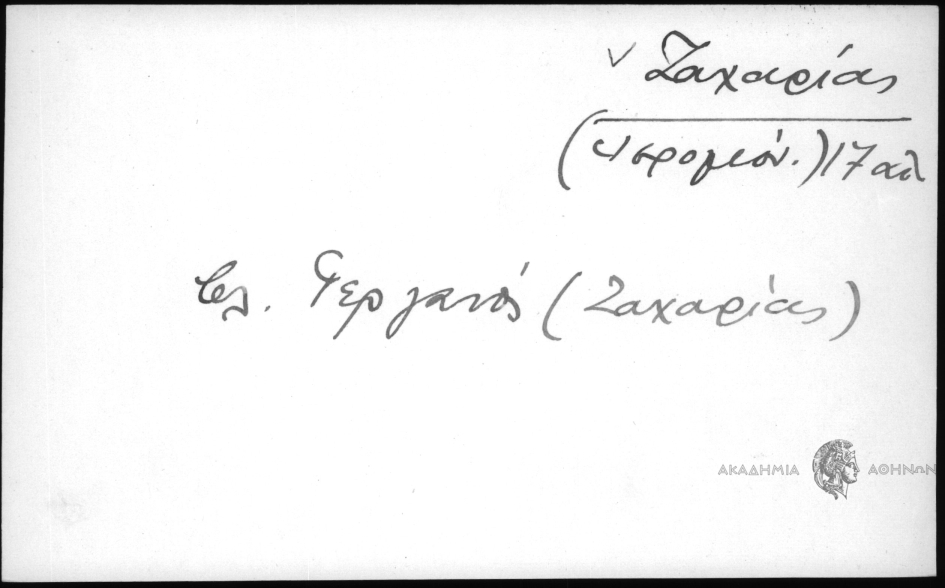 Ζαχαρίας
(Ἱερομόν.) 17 αἰ
βλ. Γεργανός (Ζαχαρίας)
ΑΚΑΔΗΜΙΑ ΑΘΗΝΩΝ